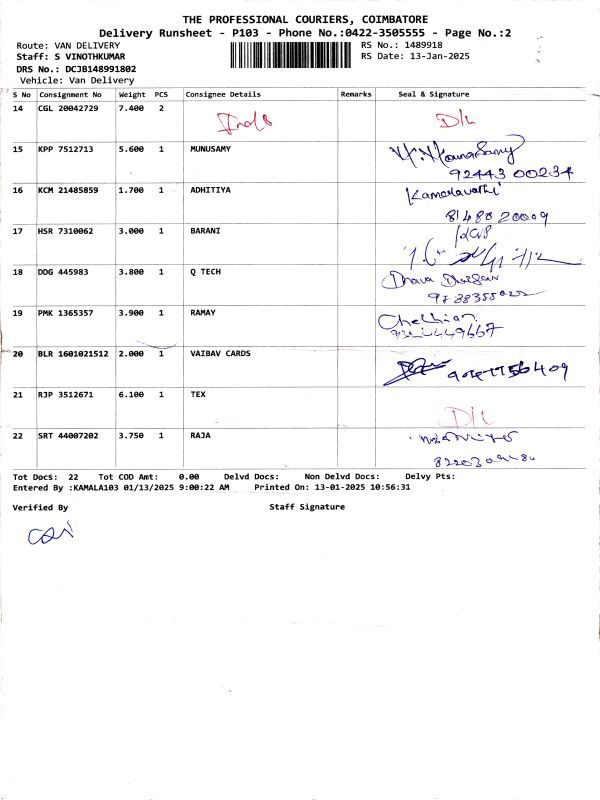 THE PROFESSIONAL COURIERS, COIMBATORE
Delivery Runsheet - P103 - Phone No.:0422-3505555 - Page No.:2
Route: VAN DELIVERY RS No.: 1489918
Staff: S VINOTHKUMAR RS Date: 13-Jan-2025
DRS No.: DCJB148991802
Vehicle: Van Delivery
S No Consignment No Weight PCS Consignee Details Remarks Seal & Signature
14 CGL 20042729 7.400 2 D/L
15 KPP 7512713 5.600 1 MUNUSAMY
92443 00234
16 KCM 21485859 1.700 1 ADHITIYA Kamalavathi
8148020009
17 HSR 7310062 3.000 1 BARANI
18 DDG 445983 3.800 1 Q TECH
19 PMK 1365357 3.900 1 RAMAY Chelhian
20 BLR 1601021512 2.000 1 VAIBAV CARDS
21 RJP 3512671 6.100 1 TEX D/L
22 SRT 44007202 3.750 1 RAJA
Tot Docs: 22 Tot COD Amt: 0.00 Delvd Docs: Non Delvd Docs: Delvy Pts:
Entered By :KAMALA103 01/13/2025 9:00:22 AM Printed On: 13-01-2025 10:56:31
Verified By Staff Signature